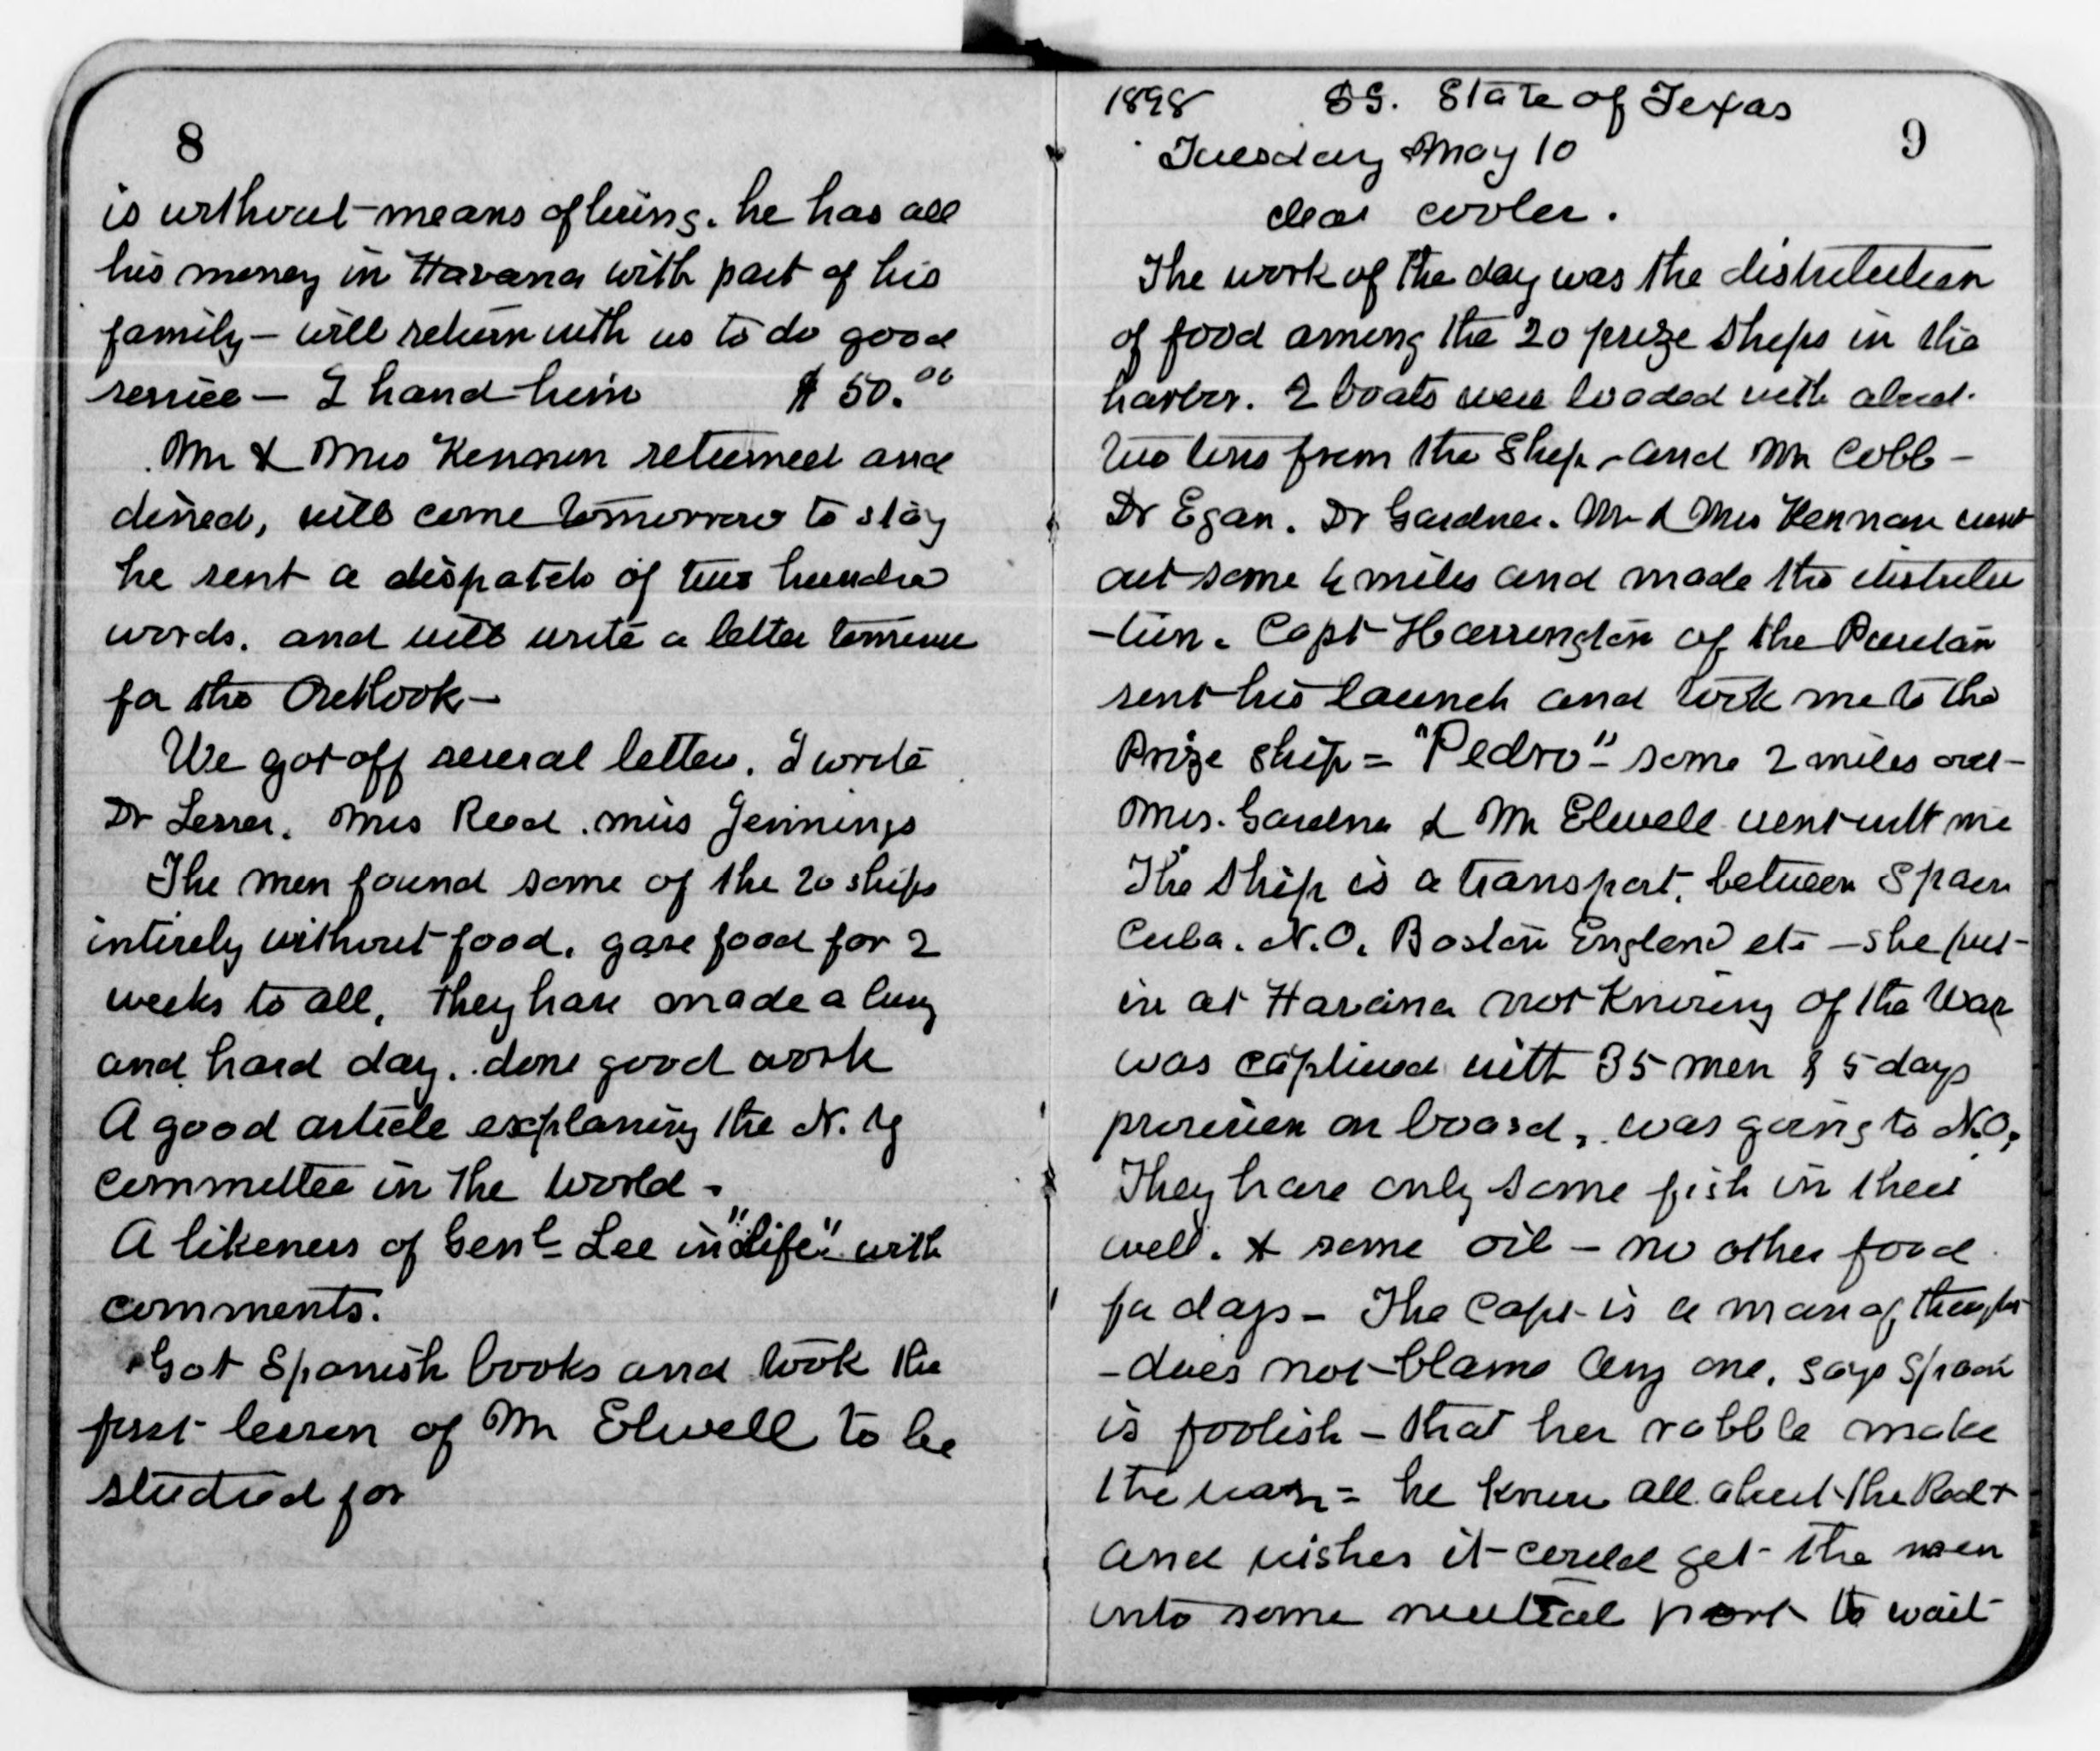 8
is without means of living. he has all
his money in Havana with part of his
family – will return with us to do good
service – I hand him $ 50.00
Mr & Mrs Kennan returned and
dined, will come tomorrow to stay
he sent a dispatch of two hundred
words. and will write a letter
for the Outlook –
We got off several letters. I wrote
Dr Lesser. Mrs Read. Miss Jennings
The men found some of the 20 ships
intirely without food. gave food for 2
weeks to all, they have made a long
and hard day. done good work
A good article explaning the N. Y
Committee in the World –
A likeness of Genl Lee in "Life" with
comments.
Got Spanish books and took the
first lesson of Mr Elwell to be
studied for
1898 SS. State of Texas
9
Tuesday May 10
clear cooler.
The work of the day was the distribution
of food among the 20 prize ships in the
harbor. 2 boats were loaded with about
two tons from the Ship – and Mr Cobb –
Dr Egan. Dr Gardner. Mr & Mrs Kennan went
out some 4 miles and made the distribu
-tion. Capt Harrington of the Puritan
sent his launch and took me to the
Prize Ship = "Pedro" – some 2 miles out –
Mrs. Gardner & Mr Elwell went with me
The Ship is a transport, between Spain
Cuba. N.O. Boston England etc – she put
in at Havana not knowing of the War
was captured with 35 men & 5 days
provision on board, was going to N.O.
They have only some fish in their
well. & some oil – no other food
for days – The Capt is a man of thought
– does not blame any one, says Spain
is foolish – that her rabble make
the war = he knew all about the Red +
and wishes it could get the men
into some neutral port to wait